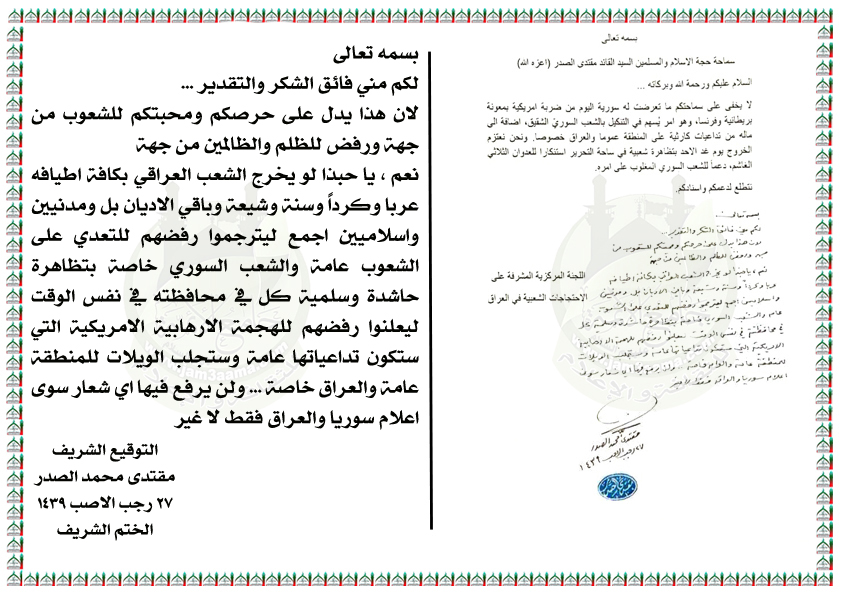 بسمه تعالى
سماحة حجة الاسلام والمسلمين السيد القائد مقتدى الصدر (اعزه الله)
السلام عليكم ورحمة الله وبركاته ...
لا يخفى على سماحتكم ما تعرضت له سورية اليوم من ضربة امريكية بمعونة
بريطانية وفرنسا، وهو امر يُسهم في التنكيل بالشعب السوري الشقيق، اضافة الى
ماله من تداعيات كارثية على المنطقة عموما والعراق خصوصا. ونحن نعتزم
الخروج يوم غد الاحد بتظاهرة شعبية في ساحة التحرير استنكارا للعدوان الثلاثي
الغاشم، دعماً للشعب السوري المغلوب على امره.
نتطلع لدعمكم واسنادكم.
اللجنة المركزية المشرفة على
الاحتجاجات الشعبية في العراق
بسمه تعالى
لكم مني فائق الشكر والتقدير ...
لان هذا يدل على حرصكم ومحبتكم للشعوب من
جهة ورفض للظلم والظالمين من جهة
مقتدى محمد الصدر
٢٧ رجب الاصب ١٤٣٩
بسمه تعالى
لكم مني فائق الشكر والتقدير ...
لان هذا يدل على حرصكم ومحبتكم للشعوب من
جهة ورفض للظلم والظالمين من جهة
نعم ، يا حبذا لو يخرج الشعب العراقي بكافة اطيافه
عربا وكرداً وسنة وشيعة وباقي الاديان بل ومدنيين
واسلاميين اجمع ليترجموا رفضهم للتعدي على
الشعوب عامة والشعب السوري خاصة بتظاهرة
حاشدة وسلمية كل في محافظته في نفس الوقت
ليعلنوا رفضهم للهجمة الارهابية الامريكية التي
ستكون تداعياتها عامة وستجلب الويلات للمنطقة
عامة والعراق خاصة ... ولن يرفع فيها اي شعار سوى
اعلام سوريا والعراق فقط لا غير
التوقيع الشريف
مقتدى محمد الصدر
٢٧ رجب الاصب ١٤٣٩
الختم الشريف